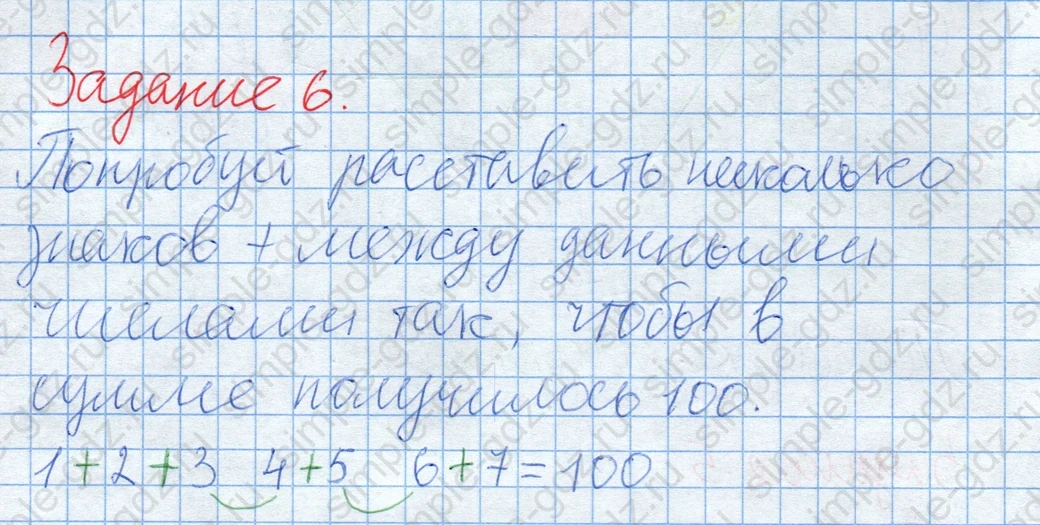 Задание 6.
Попробуй расставить несколько
знаков + между данными
числами так, чтобы в
сумме получилось 100.
1 + 2 + 3 4 + 5 6 + 7 = 100